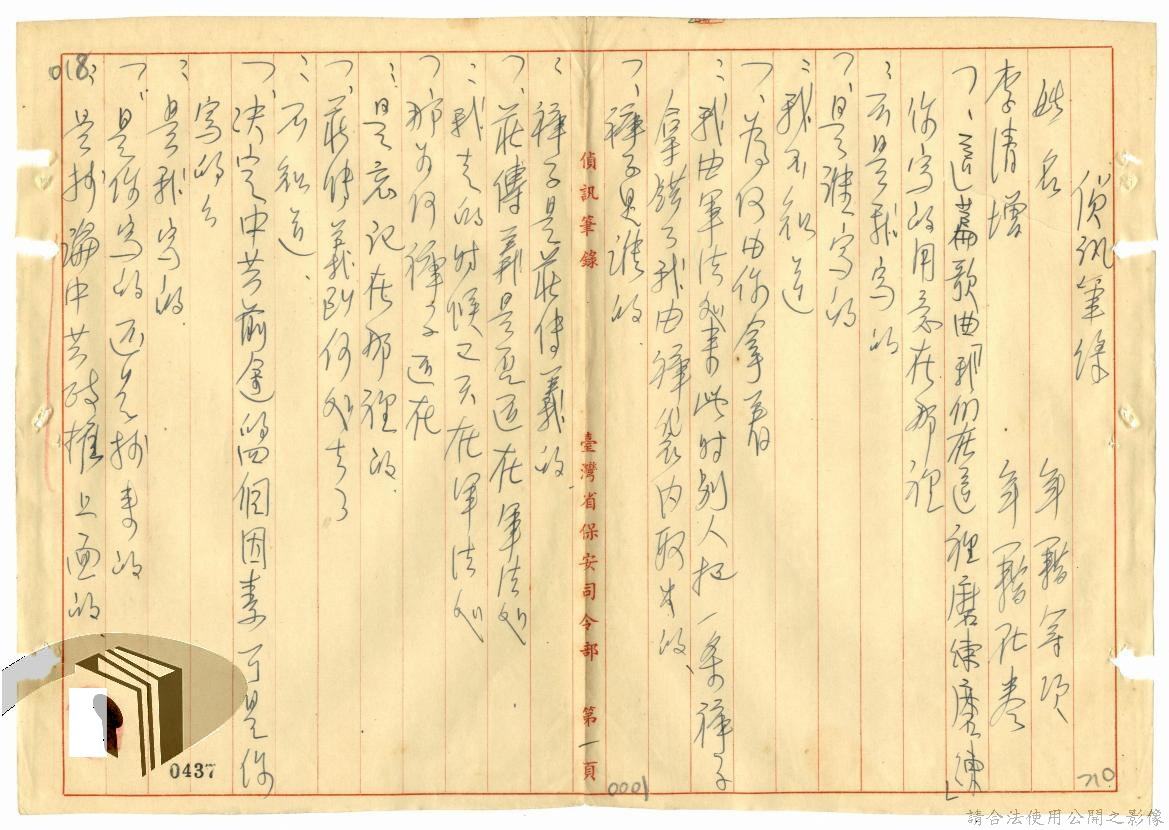 偵訊筆錄
姓名 年籍等項
李清增 年籍在卷
、這篇歌曲「我們在這裡磨練磨練」
你寫的用意在那裡
：不是我寫的
、是誰寫的
：我不知道
、為何由你拿着
：我由軍法處來此時別人把一条褲子
拿錯了我由褲袋內取出的、
、褲子是誰的.
：褲子是莊傳義的.
、莊傳義是否还在軍法处.
：我走的時候二天在軍法処
、那为何褲子还在
：是忘記在那裡的.
、莊傳義到何处去了
：不知道、
、決定中共前途的四個因素可是你
寫的
：是我寫的
、是你寫的还是抄來的
：是抄論中共政權上面的
偵訊筆錄 臺灣省保安司令部 第一頁
018
0437
0001
210
請合法使用公開之影像